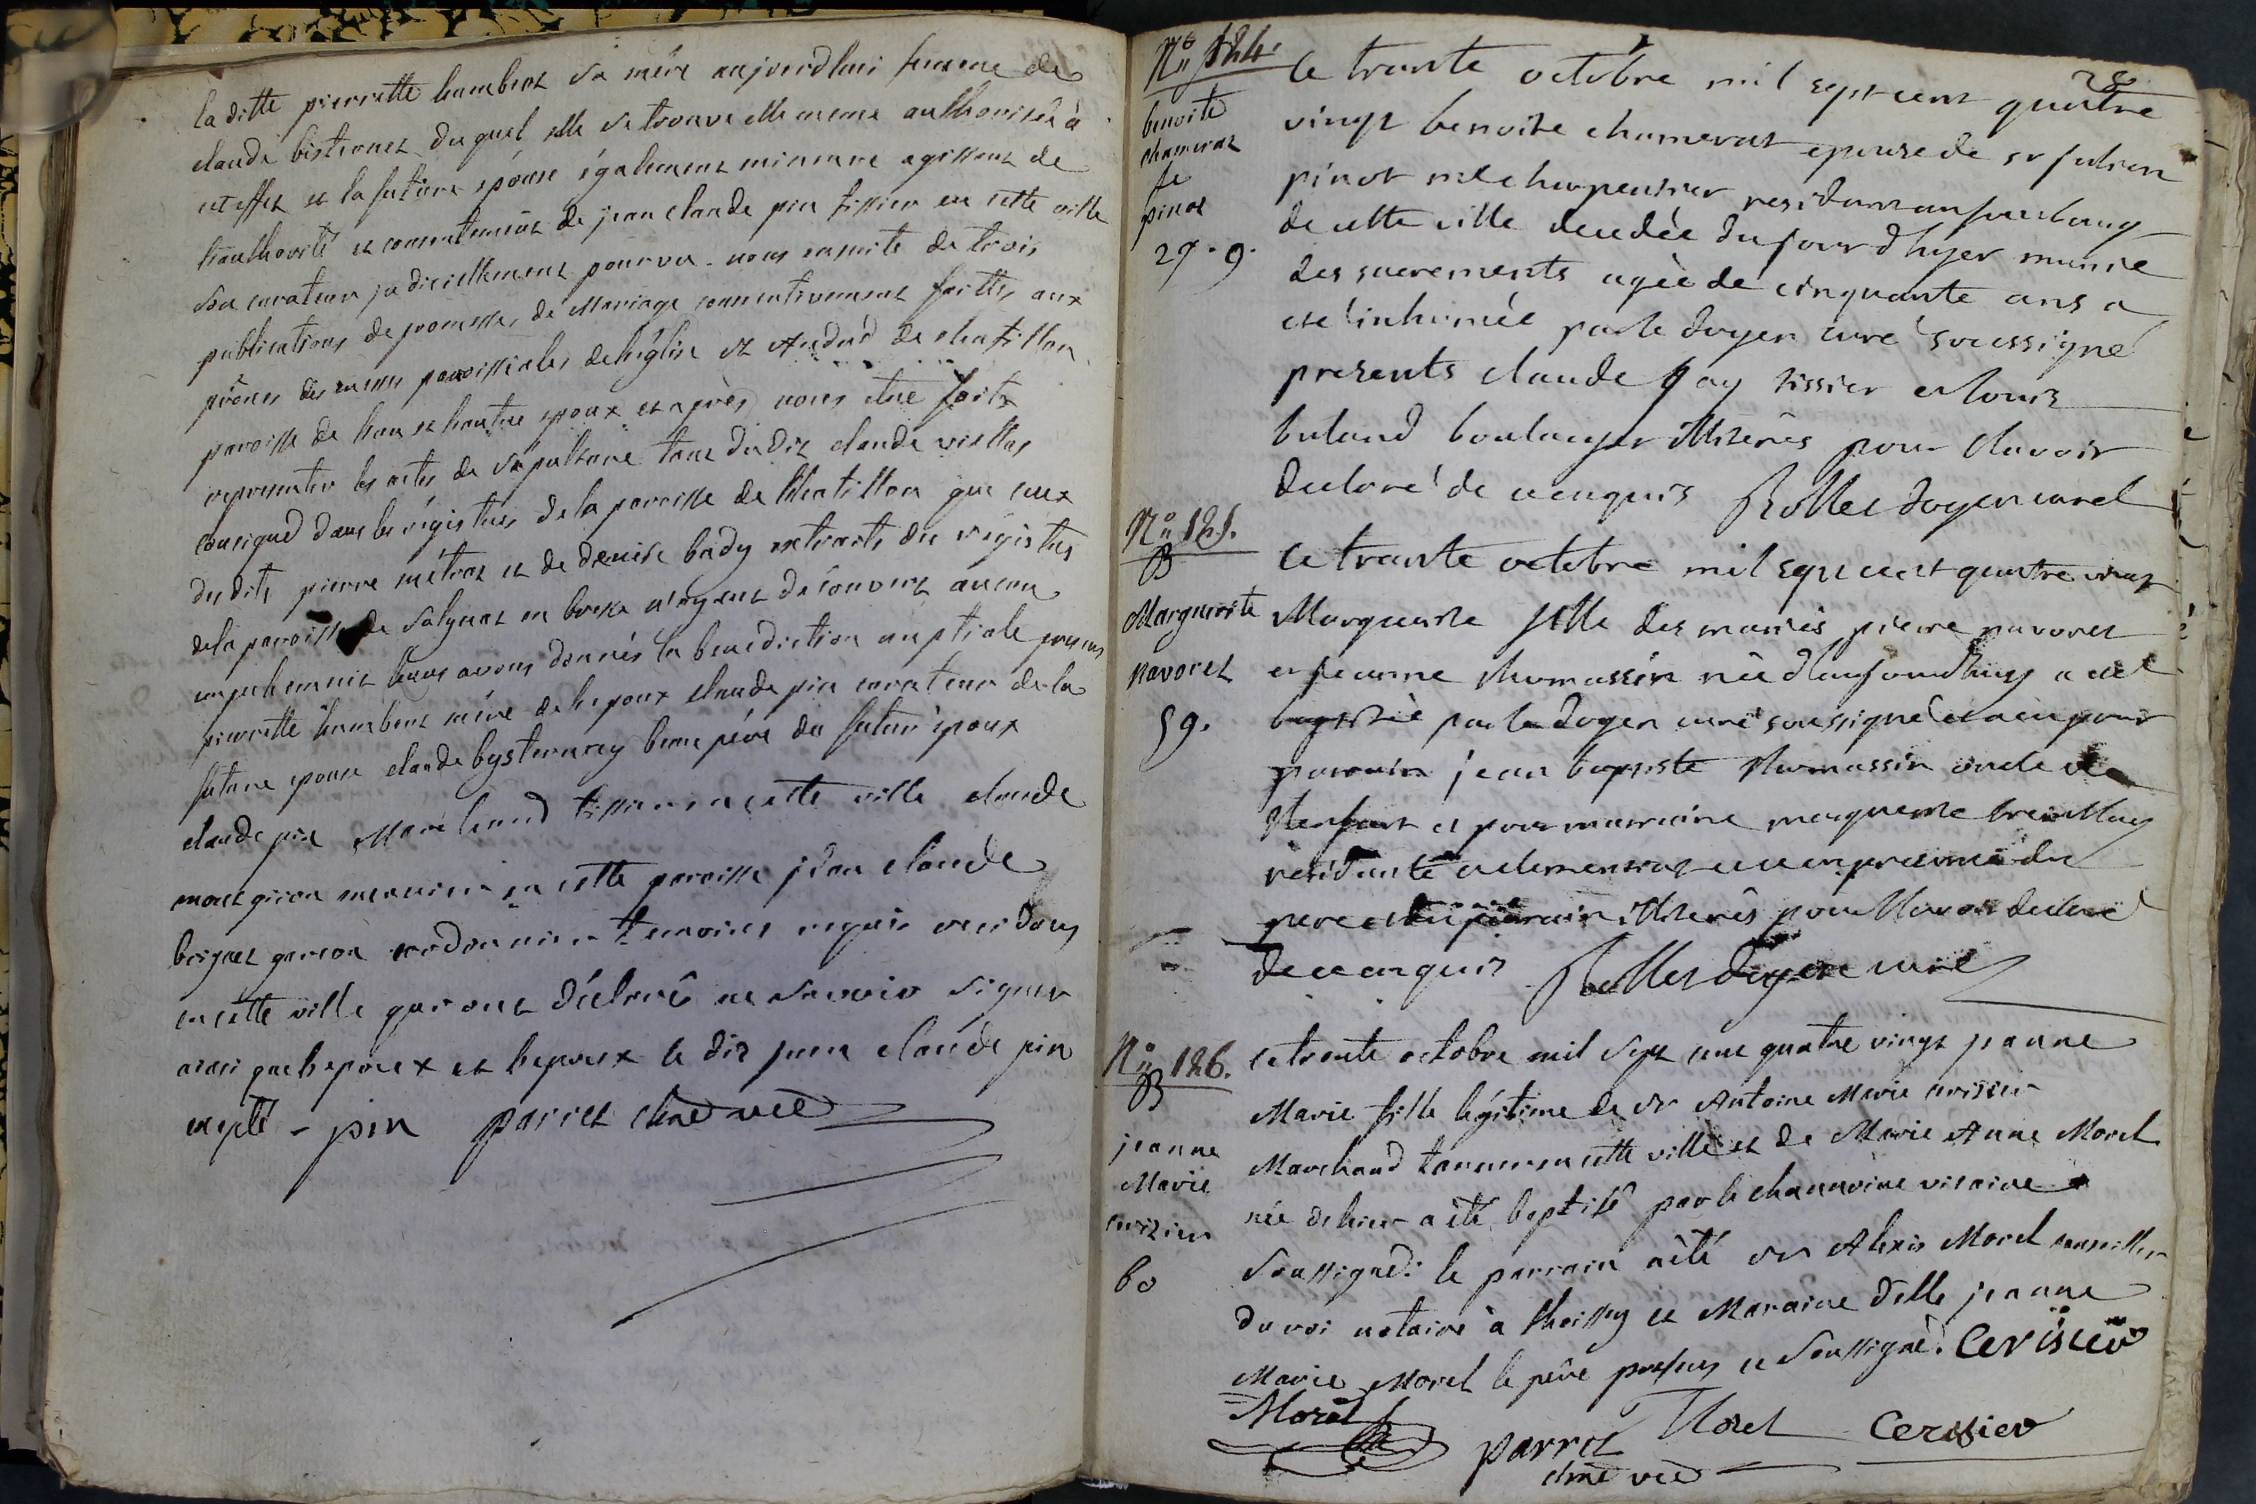 la ditte pierrette humbert sa mère aujourdhui femme de
claude bisternet du quel elle se trouve elle meme authorisée à
cet effet et la future épouse également mineure agissant de
l'authorité et consentement de jean claude pin tissier en cette ville
son curateur judiciellement pourvu. nous ensuite de trois
publications de promesses de Mariage consecutivement faittes aux
prônes des messes paroissiales de l'église st André de chatillon
paroisse de l'un et l'autre epoux et après nous etre faits
representer les actes de sépulture tant du dit claude
consigné dans les régistres de la paroisse de Chatillon que ceux
des dits pierre métraz et de denise bady extraits des régistres
de la paroisse de en n'ayant découvert aucun
empechement leurs avons donnés la benediction nuptiale presens
pierrette humbert mère de l'epoux claude pin curateur de la
future epouse claude bysternay beau père du futur epoux
claude pin Marchand tissier en cette ville claude
en cette paroisse jean claude
garçon cordonnier temoins requis residans
en cette ville qui ont déclaré ne scavoir signer
ainsi que l'epoux et l'epouse le dit jean claude pin
excepté - pin parret chne vic
28
No 124.
benoite
chamerat
fe
pinot
29. 9.
Ce trante octobre mil sept cent quatre
vingt benoite chamerat epouse de sr julien
pinot me charpentier residant au fauxbourg
de cette ville decedée du jour d'hyer munie
des sacrements agée de cinquante ans a
eté inhumée par le doyen curé soussigné
presents claude gay tissier et louis
buland boulanger illiterés pour l'avoir
declaré de ce enquis Rollet doyen curé
No 125.
B
Marguerite
navoret
59.
Ce trante octobre mil sept cent quatre vingt
Marguerite fille des mariés pierre navoret
et jeanne thomassin née d'aujourdhuy a eté
baptisée par le doyen curé soussigné et a eu pour
parrain jean baptiste thomassin oncle de
l'enfant et pour marraine marguerite
residante a en presence du
pere et du parrain illiterés pour l'avoir declaré
de ce enquis Rollet doyen curé
No 126.
B
jeanne
Marie
cerizier
60
Ce trente octobre mil sept cent quatre vingt jeanne
Marie fille légitime de sr Antoine Marie cerisier
Marchand tanneur en cette ville et de Marie Anne Morel
née de hier a été baptisé par le chanoine vicaire
soussigné: le parrain a été sr Alexis Morel conseiller
du roi notaire à thoissey et Maraine delle jeanne
Marie Morel le père present et soussigné. Cerisier
Morel parret Morel Cerisier
chne vic